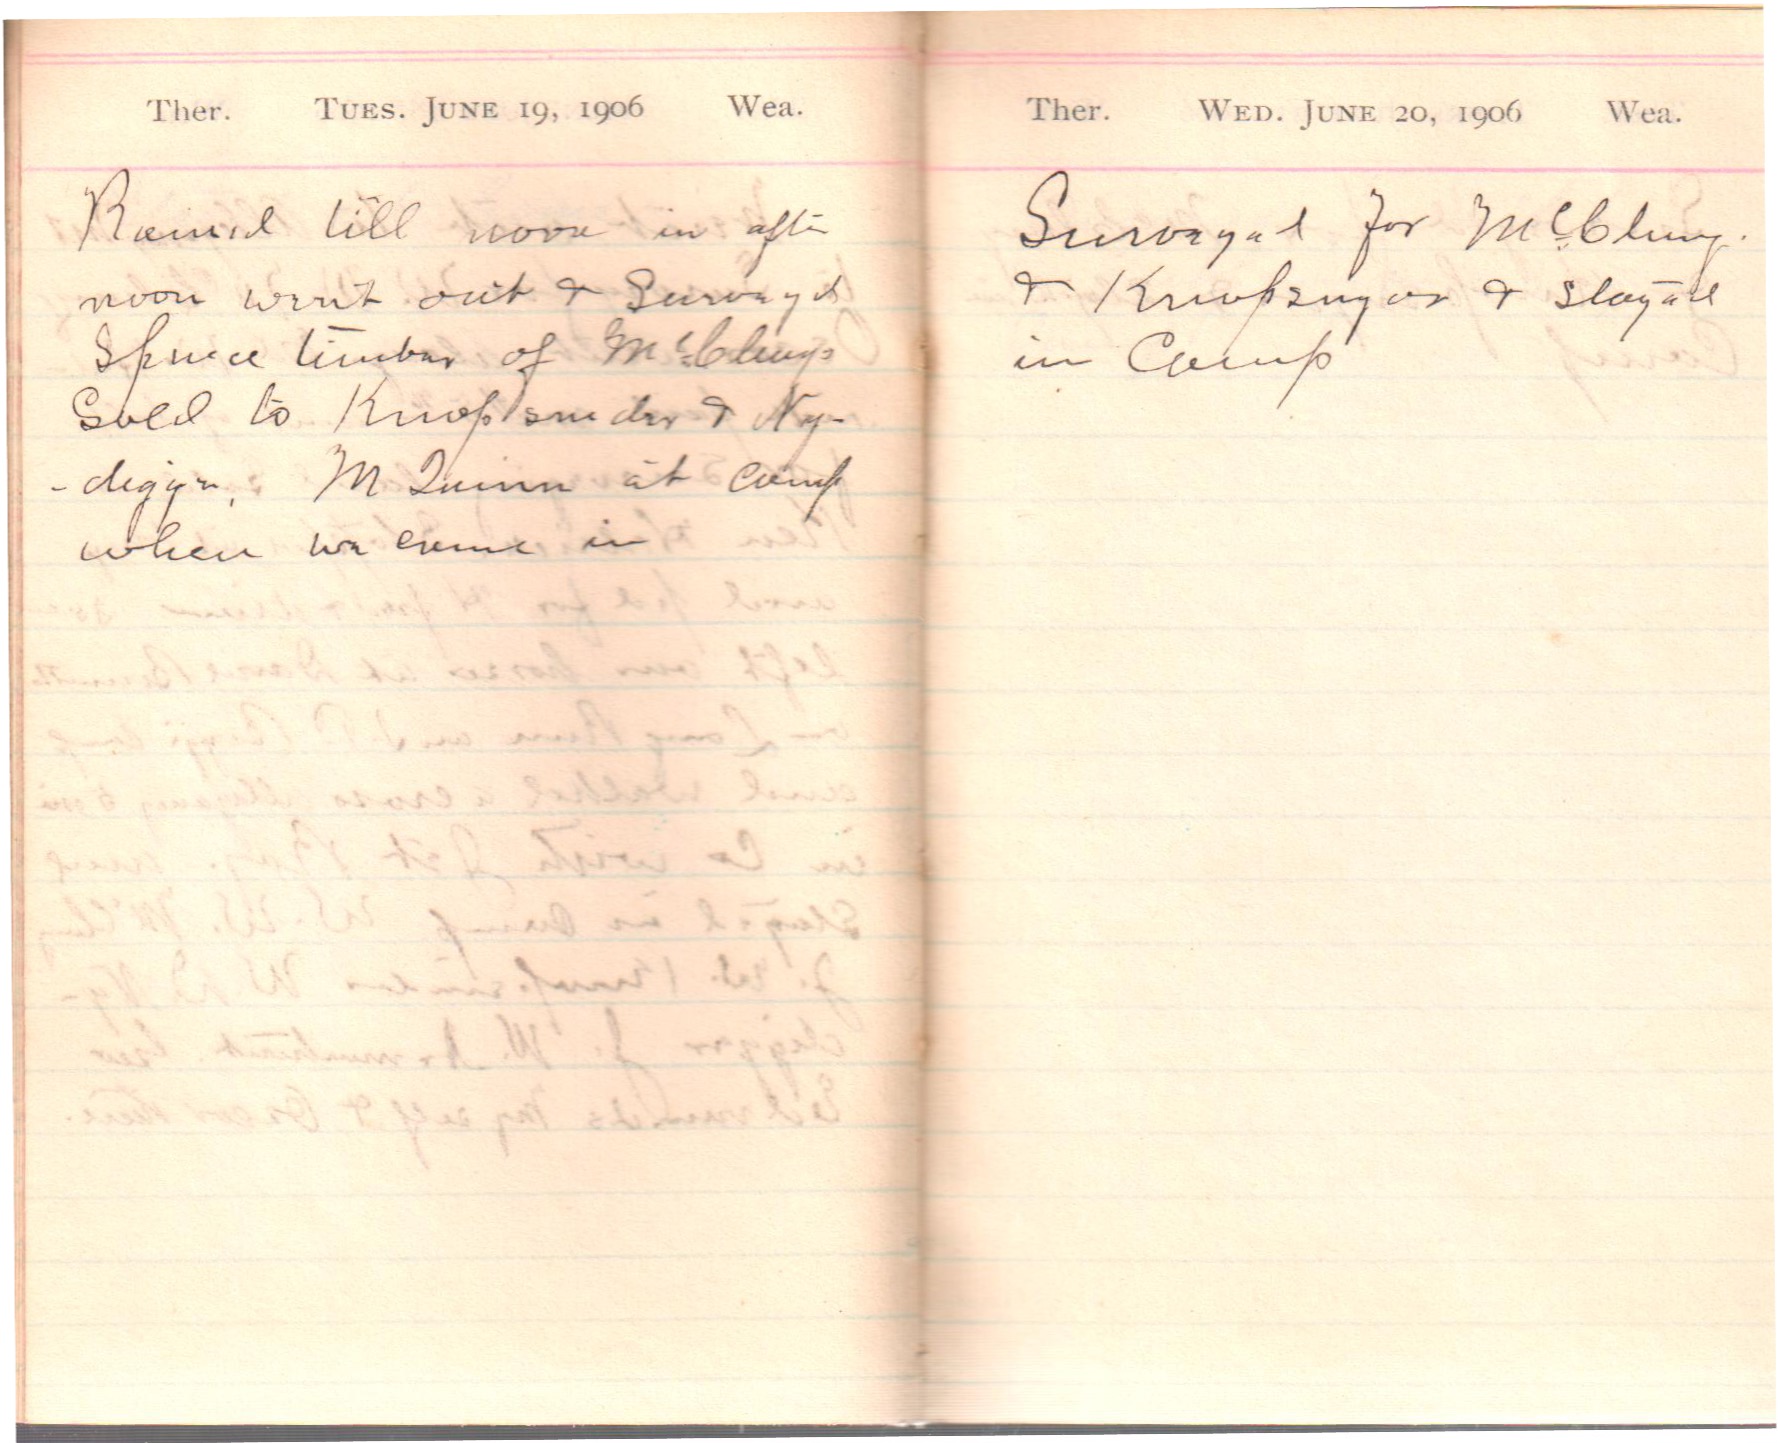 Ther. TUES. JUNE 19, 1906 Wea.
Rained till noon in after
noon went out & Surveyd
Spruce timber of McClungs
Sold to Knopsnider & Ny-
-digger, M Quinn at camp
when we came in
Ther. WED. JUNE 20, 1906 Wea.
Surveyed for McClung.
& & Stayed
in Camp